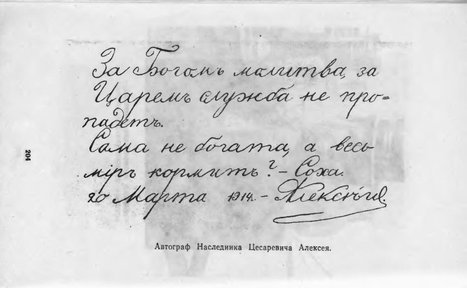 За Богомъ молитва, за
Царемъ служба не про-
падетъ.
Сама не богата, а весь
міръ кормитъ? - Соха.
20 Марта 1914. - Алексѣй.
204
Автограф Наследника Цесаревича Алексея.